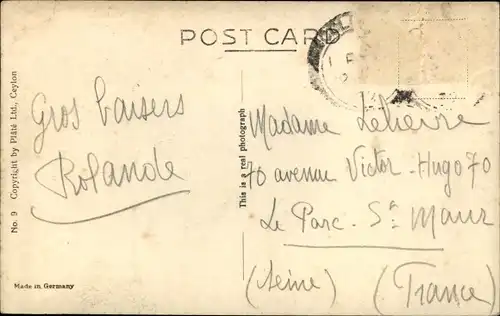 POST CARD
No. 9 Copyright by Plâté Ltd., Ceylon
Gros baisers
Rolande
This is a real photograph
Madame
70 avenue Victor-Hugo 70
Le Parc-St Maur
(Seine) (France)
Made in Germany